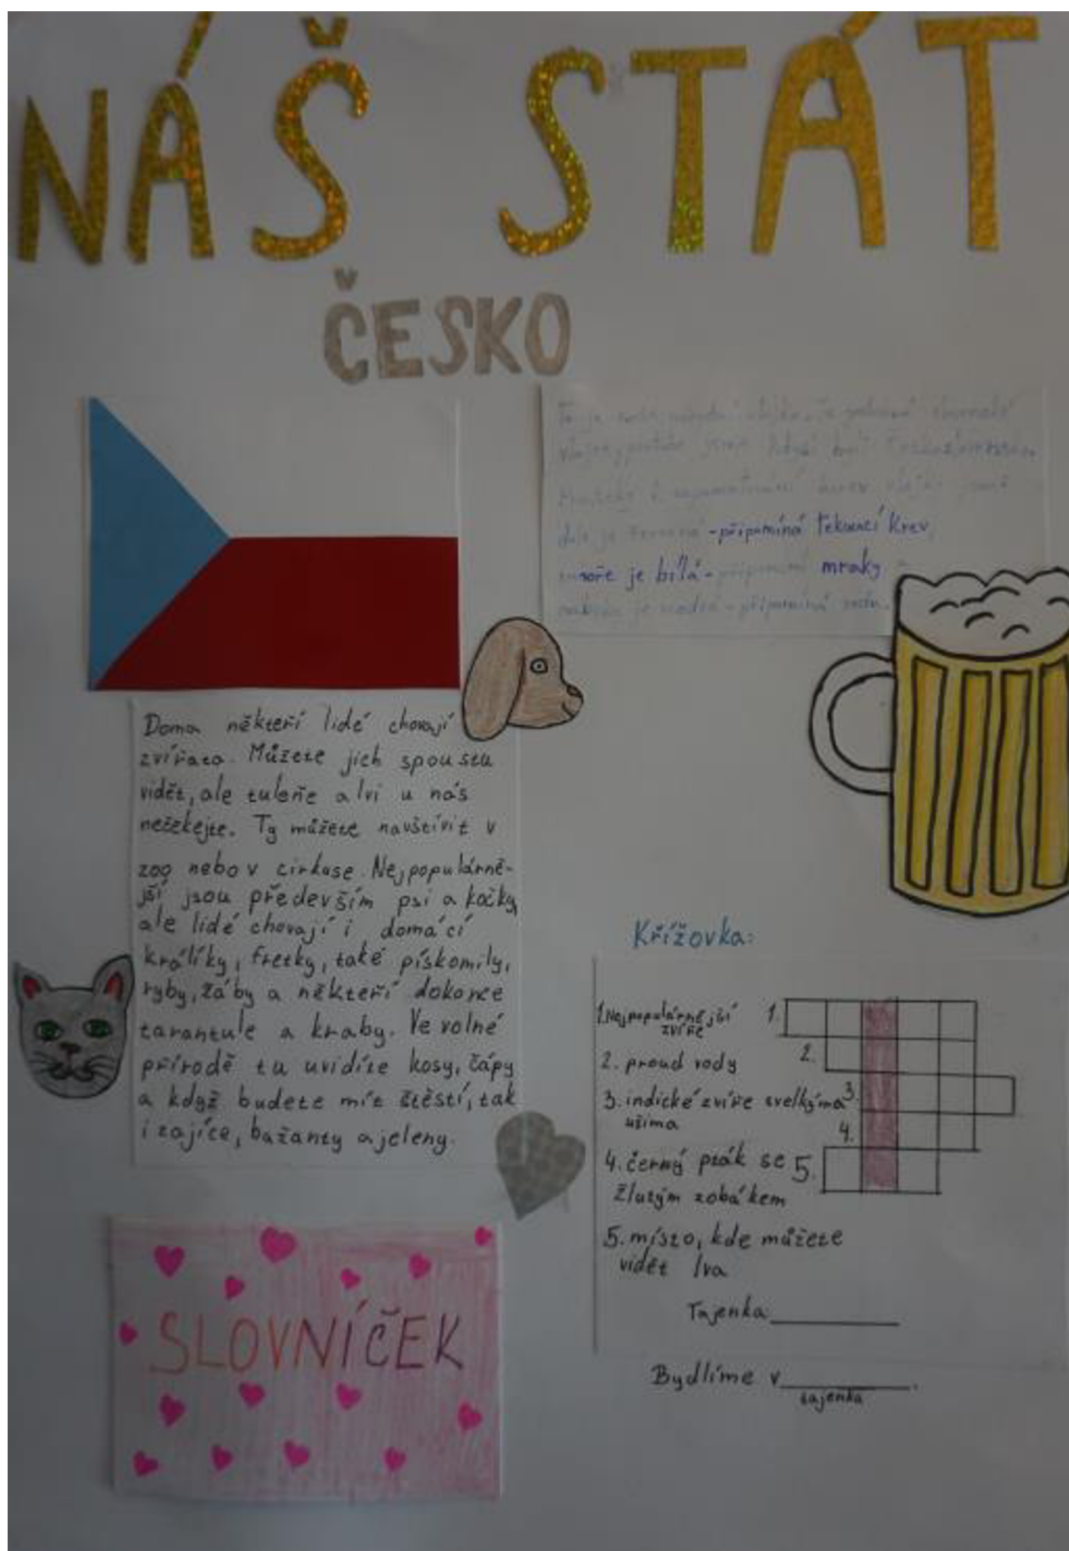 NÁŠ STÁT
ČESKO
je
-připomíná tekoucí krev,
je bílá - připomíná mraky
je modrá - připomíná
Doma někteří lidé chovají
zvířata. Můžete jich spoustu
vidět, ale tuleňe a lvi u nás
nečekejte. Ty můžete navštívit v
zoo nebo v cirkuse. Nejpopulárně-
jší jsou především psi a kočky,
ale lidé chovají i domácí
králíky, fretky, také pískomily,
ryby, žáby a někteří dokonce
tarantule a kraby. Ve volné
přírodě tu uvidíte kosy, čápy
a když budete mít štěstí, tak
i zajíce, bažanty a jeleny.
Křížovka:
1. Nejpopulárnější
zvíře
2. proud vody
3. indické zvíře svelkýma
ušima
4. černý pták se
žlutým zobákem
5. místo, kde můžete
vidět lva
1.
2.
3.
4.
5.
Tajenka
Bydlíme v
tajenka
SLOVNÍČEK